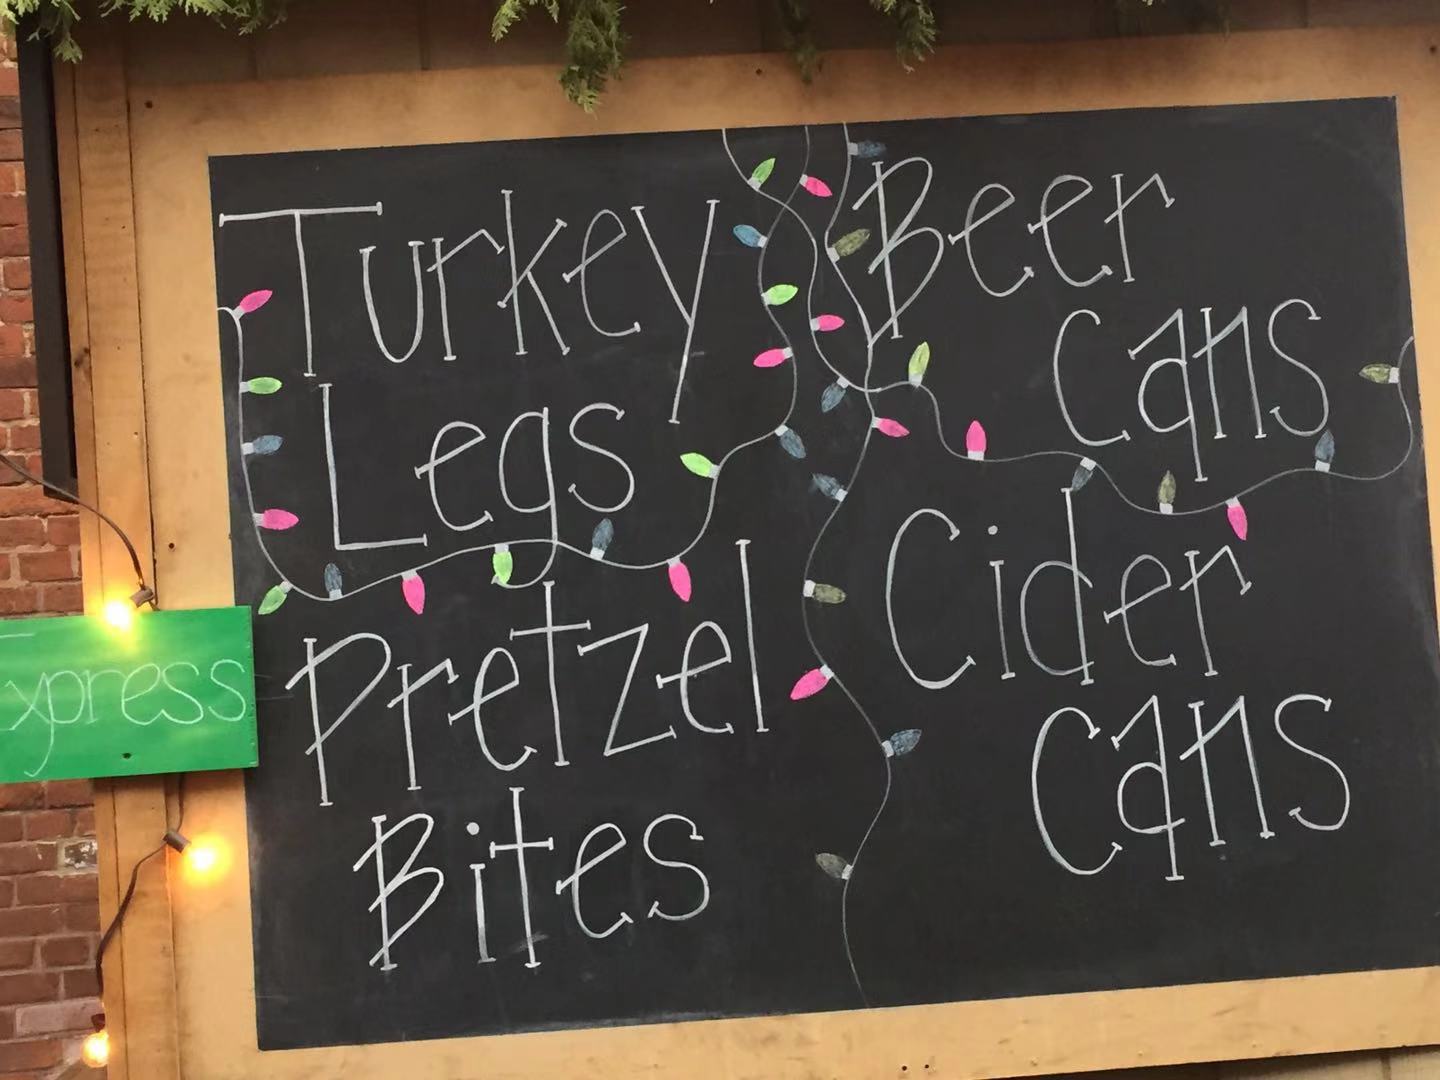 Turkey
Legs
Pretzel
Bites
Beer
Cans
Cider
Cans
Express